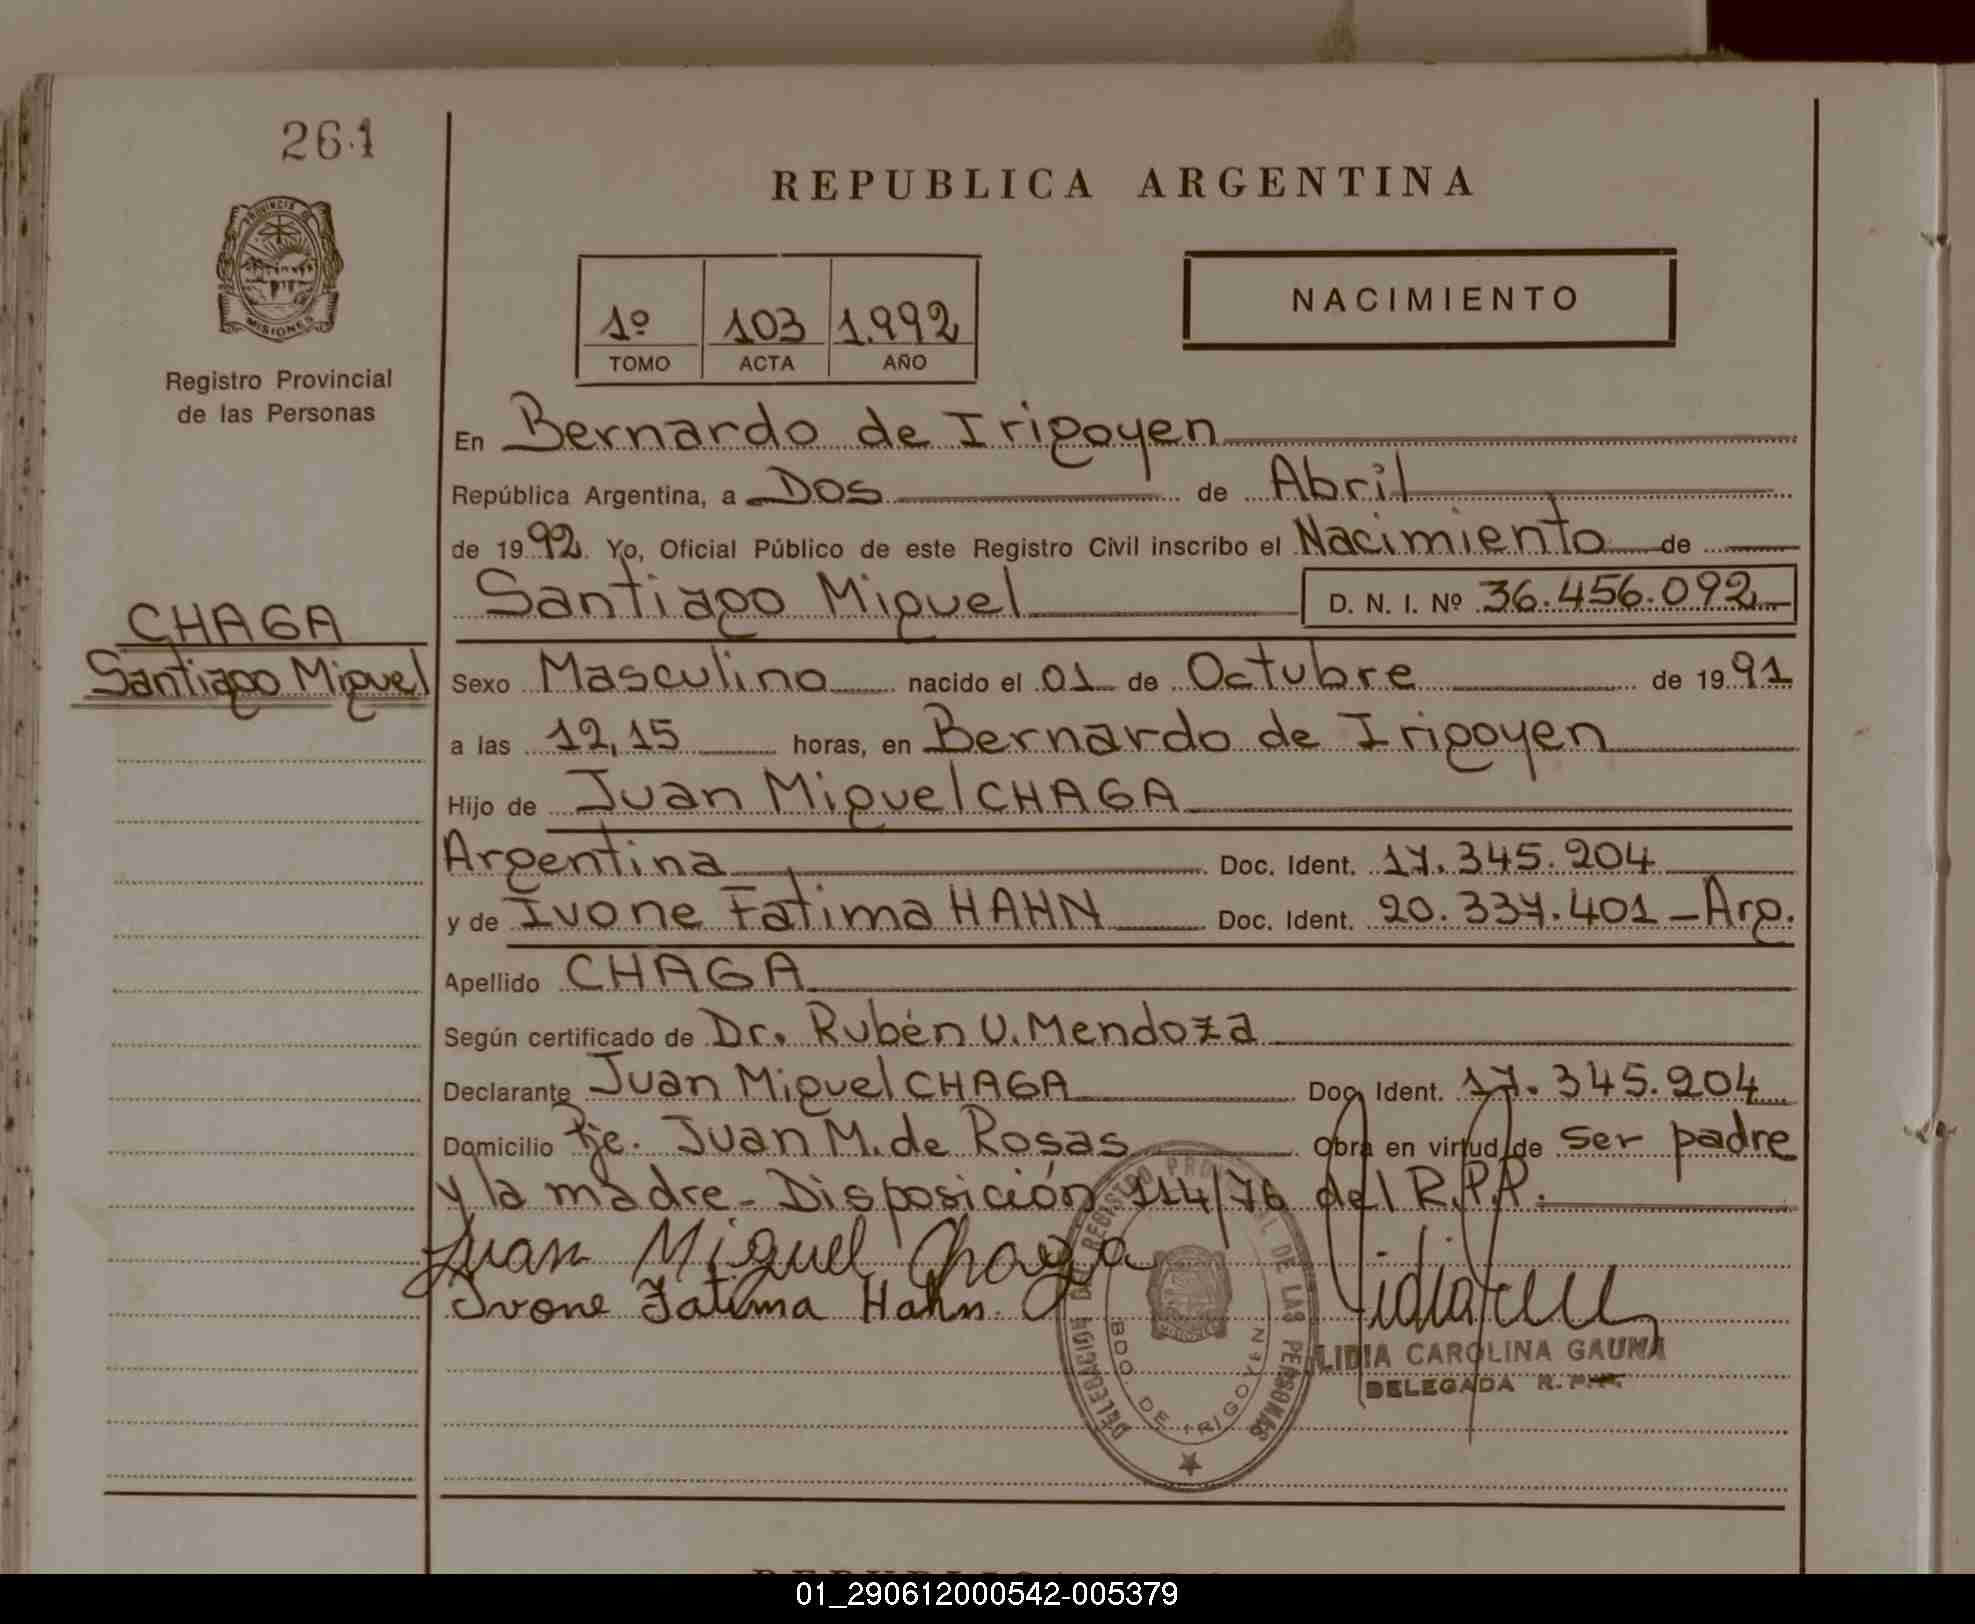 261
PROVINCIA DE
MISIONES
Registro Provincial
de las Personas
REPUBLICA ARGENTINA
1º 103 1.992
TOMO ACTA AÑO
NACIMIENTO
En Bernardo de Irigoyen
República Argentina, a Dos de Abril
de 1992. Yo, Oficial Público de este Registro Civil inscribo el Nacimiento de
Santiago Miguel D. N. I. Nº 36.456.092
CHAGA
Santiago Miguel
Sexo Masculino nacido el 01 de Octubre de 1991
a las 12,15 horas, en Bernardo de Irigoyen
Hijo de Juan Miguel CHAGA
Argentina Doc. Ident. 17.345.204
y de Ivone Fatima HAHN Doc. Ident. 20.337.401 - Arg.
Apellido CHAGA
Según certificado de Dr. Rubén U. Mendoza
Declarante Juan Miguel CHAGA Doc. Ident. 17.345.204
Domicilio Pje. Juan M. de Rosas Obra en virtud de ser padre
y la madre - Disposición 114/76 del R.P.P.
Juan Miguel Chaga
Ivone Fatima Hahn.
DELEGACION DEL REGISTRO PROVINCIAL DE LAS PERSONAS
BDO DE IRIGOYEN
LIDIA CAROLINA GAUNA
DELEGADA R.P.P.
01_290612000542-005379